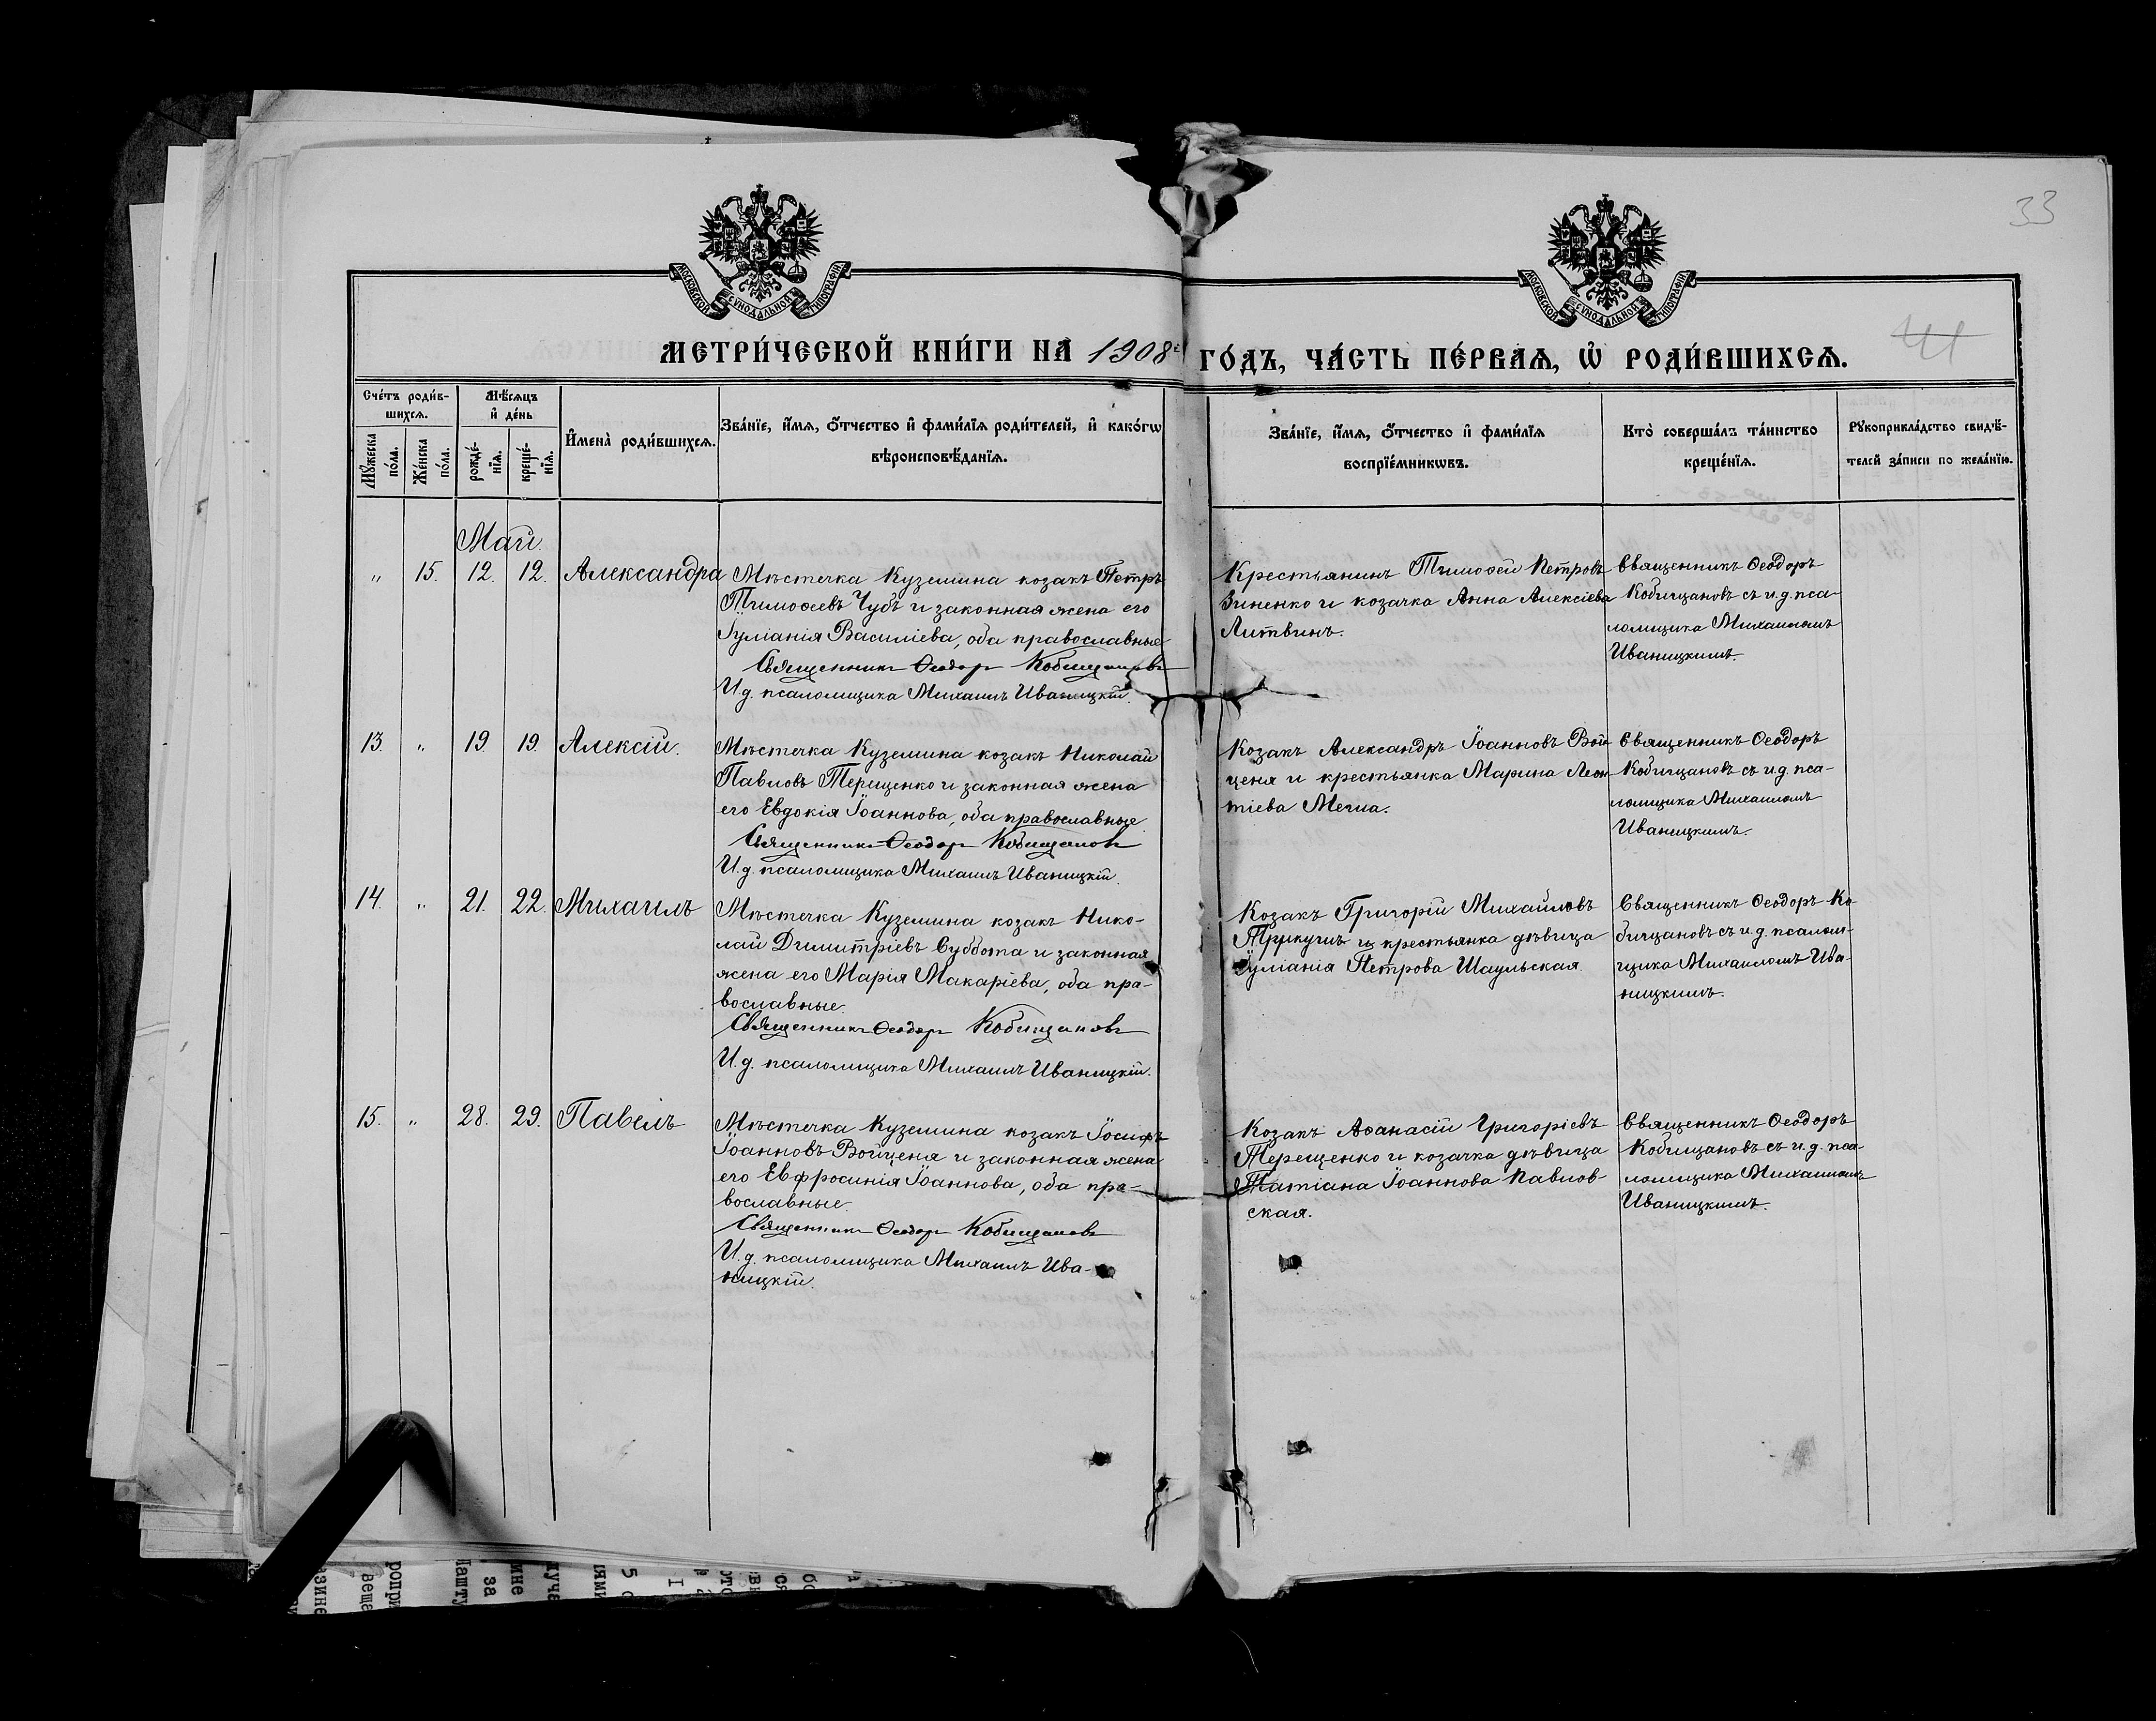 33
МОСКОВСКОЙ СѴНОДАЛЬНОЙ ТИПОГРАФІИ
МОСКОВСКОЙ СѴНОДАЛЬНОЙ ТИПОГРАФІИ
41
МЕТРИ́ЧЕСКОЙ КНИ́ГИ НА 1908 ГО́ДЪ, ЧА́СТЬ ПЕ́РВАЯ, Ѽ РОДИ́ВШИХСѦ.
Сче́тъ роди́в-
шихсѧ.
Мѣ́сѧцъ
и҆ де́нь
Мꙋ́жеска
по́ла.
Же́нска
по́ла.
рожде́-
нїѧ.
креще́-
нїѧ.
И҆мена̀ роди́вшихсѧ.
Зва́нїе, и҆́мѧ, ѻ҆́тчество и҆ фами́лїѧ роди́телей, и҆ како́гѡ
вѣроисповѣ́данїѧ.
Зва́нїе, и҆́мѧ, ѻ҆́тчество и҆ фами́лїѧ
воспрїе́мникѡвъ.
Кто̀ соверша́лъ та́инство
креще́нїѧ.
Рꙋкоприкла́дство свидѣ́-
телей за́писи по жела́нїю.
Май.
" 15. 12. 12. Александра
Мѣстечка Куземина козакъ Петръ
Тимоѳеевъ Чубъ и законная жена его
Іуліанія Василіева, оба православные
Священникъ Ѳеодоръ Кобищановъ
И.д. псаломщика Михаилъ Иваницкій.
Крестьянинъ Тимоѳей Петровъ
Зиненко и козачка Анна Алексіева
Литвинъ.
Священникъ Ѳеодоръ
Кобищановъ съ и.д. пса-
ломщика Михаиломъ
Иваницкимъ.
13. " 19. 19. Алексій.
Мѣстечка Куземина козакъ Николай
Павловъ Терещенко и законная жена
его Евдокія Іоаннова, оба православные
Священникъ Ѳеодоръ Кобищановъ
И.д. псаломщика Михаилъ Иваницкій.
Козакъ Александръ Іоанновъ Вой
ценя и крестьянка Марина Леон
тіева
Священникъ Ѳеодоръ
Кобищановъ съ и.д. пса-
ломщика Михаиломъ
Иваницкимъ.
14. " 21. 22. Михаилъ
Мѣстечка Куземина козакъ Нико-
лай Димитріевъ Суббота и законная
жена его Марія Макаріева, оба пра-
вославные.
Священникъ Ѳеодоръ Кобищановъ
И.д. псаломщика Михаилъ Иваницкій.
Козакъ Григорій Михайловъ
и крестьянка дѣвица
Іуліанія Петрова Шаульская
Священникъ Ѳеодоръ Ко-
бищановъ съ и.д. псалом-
щика Михаиломъ Ива-
ницкимъ.
15. " 28. 29. Павелъ
Мѣстечка Куземина козакъ Іосифъ
Іоанновъ Войценя и законная жена
его Евфросинія Іоаннова, оба пра-
вославные.
Священникъ Ѳеодоръ Кобищановъ
И.д. псаломщика Михаилъ Ива-
ницкій.
Козакъ Аѳанасій Григоріевъ
Терещенко и козачка дѣвица
Татіана Іоаннова Павлов-
ская.
Священникъ Ѳеодоръ
Кобищановъ съ и.д. пса-
ломщика Михаиломъ
Иваницкимъ.